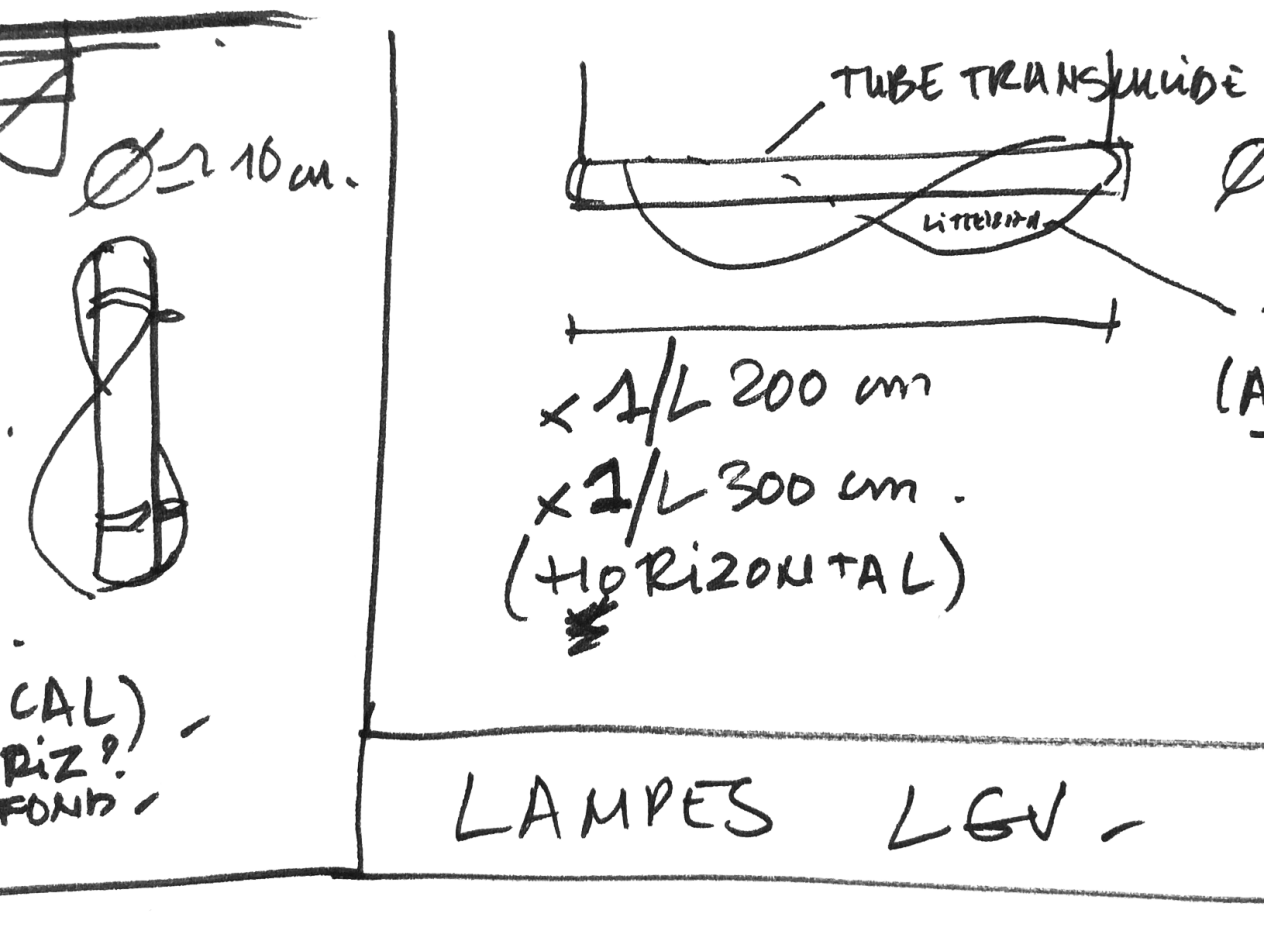 Ø ≃ 10 cm.
CAL)
RIZ?
FOND
TUBE TRANSLUCIDE
Ø
x 1/L 200 cm
x 1/L 300 cm.
(HORIZONTAL)
(A
LAMPES LGV